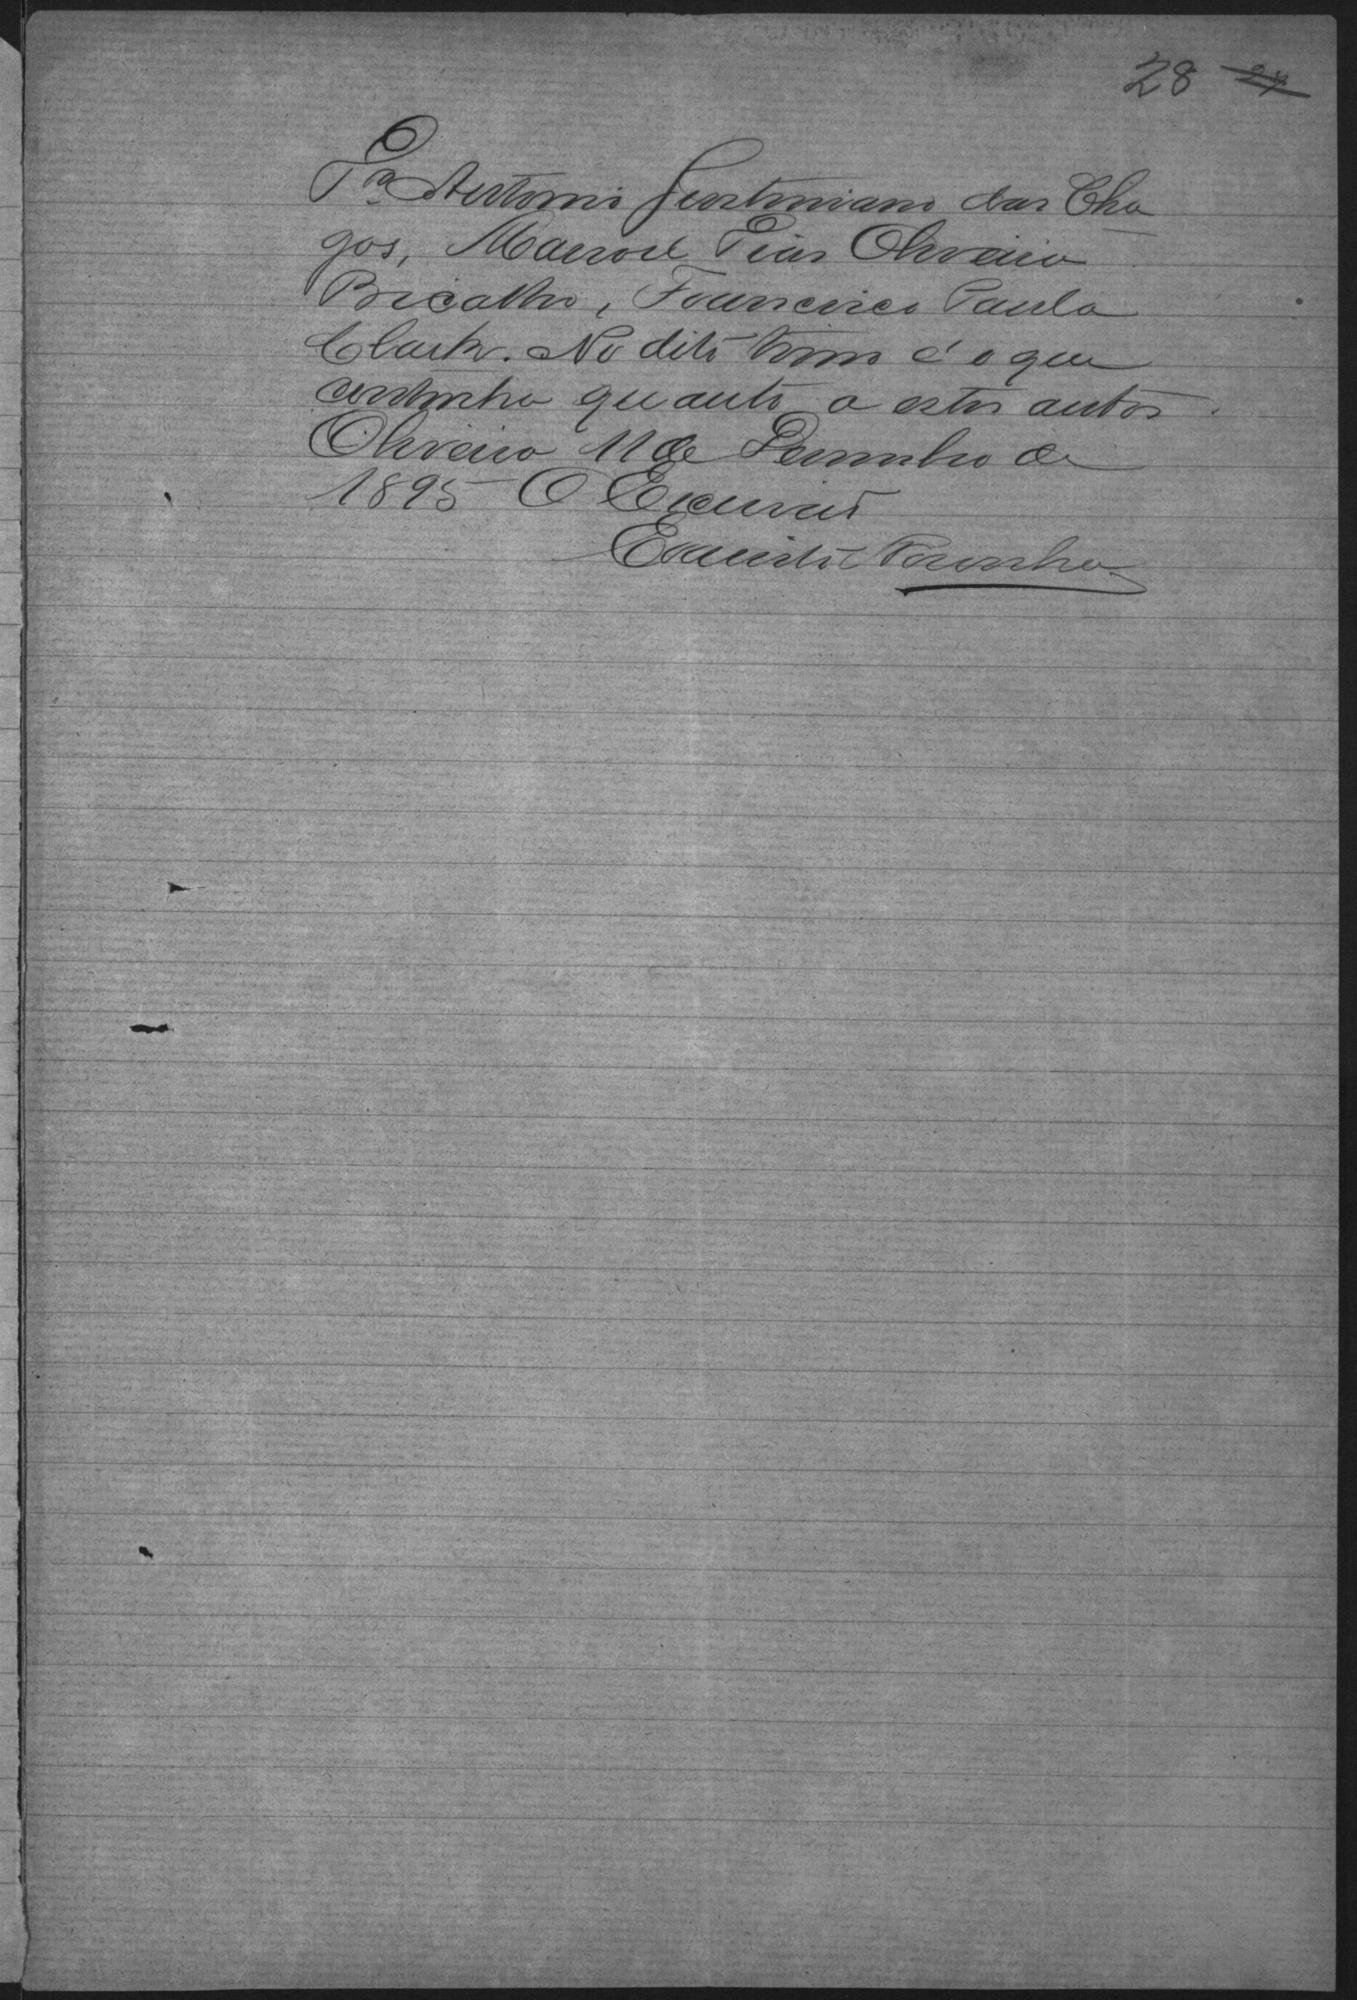 28 24
Pe Antonio Justiniano das Cha
gas, Manoel Pias Oliveira
Bicalho, Francisco Paula
Clark. No dito termo é o que
continha quanto a estes autos.
Oliveira 11 de Dezembro de
1895 O Escrivão
Evaristo Noronha